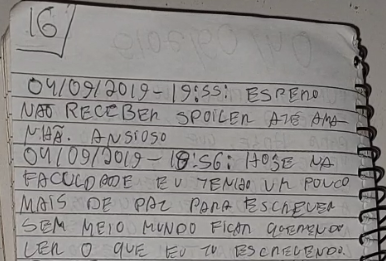 16
04/09/2019 - 19:55: ESPERO
NÃO RECEBER SPOILER ATÉ AMA-
NHÃ. ANSIOSO
04/09/2019 - 19:56: HOJE NA
FACULDADE EU TENHO UM POUCO
MAIS DE PAZ PARA ESCREVER
SEM MEIO MUNDO FICAR QUERENDO
LER O QUE EU TO ESCREVENDO.